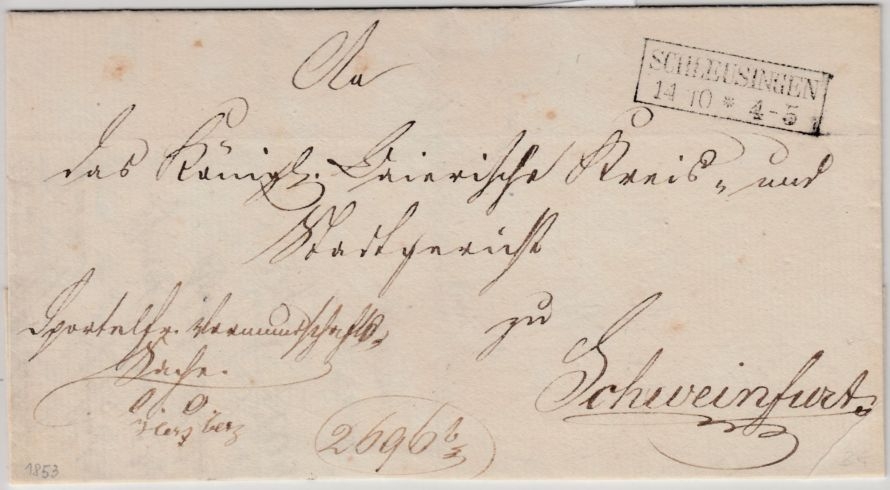 SCHLEUSINGEN
14 10 * 4-5
An
das Königl. Baierische Kreis- und
Stadtgericht
zu
Schweinfurt.
Sportelfr. Vormundschafts-
Sache.
2696
1853